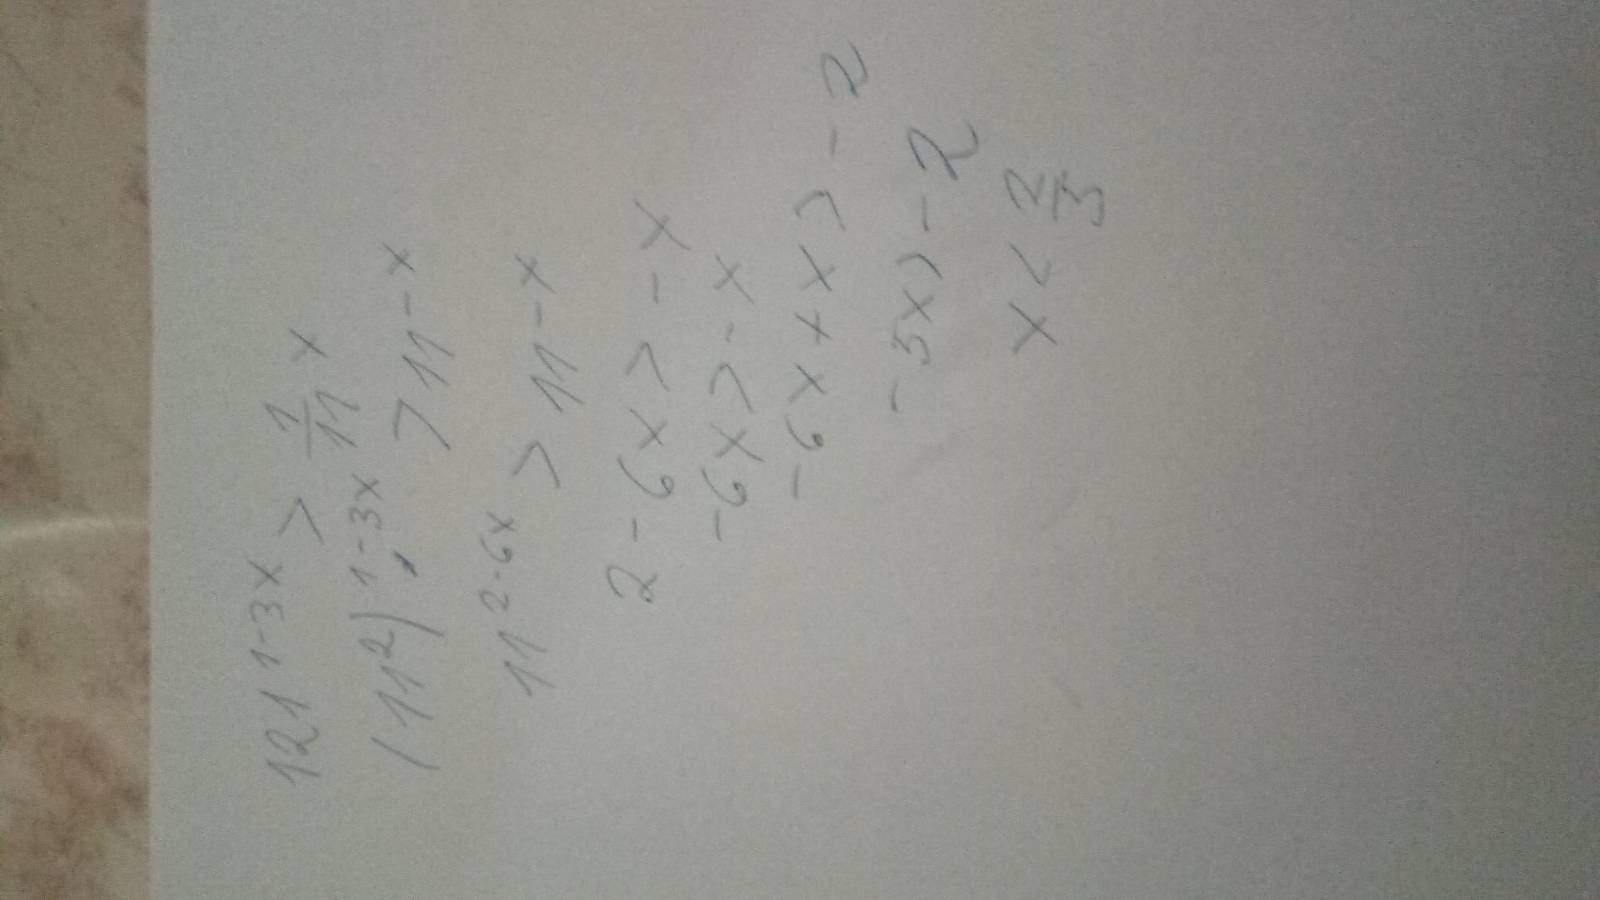 121^{1-3x} > \frac{1}{11}^{x}
(11^{2})^{1-3x} > 11^{-x}
11^{2-6x} > 11^{-x}
2 - 6x > -x
-6x > -x
-6x + x > -2
-5x > -2
x < \frac{2}{5}